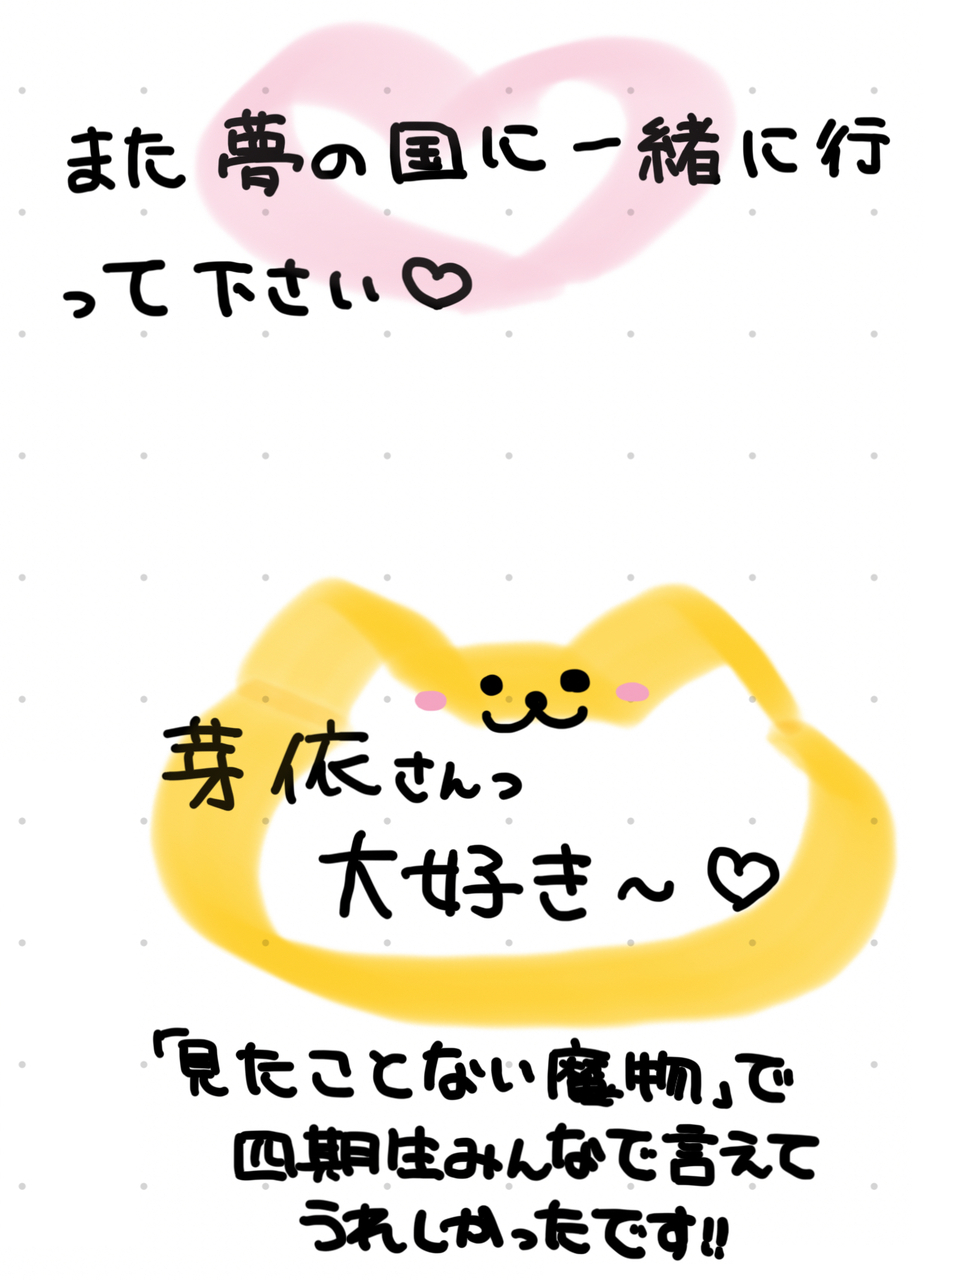 また夢の国に一緒に行
って下さい♡
芽依さんっ
大好き～♡
「見たことない魔物」で
四期生みんなで言えて
うれしかったです!!